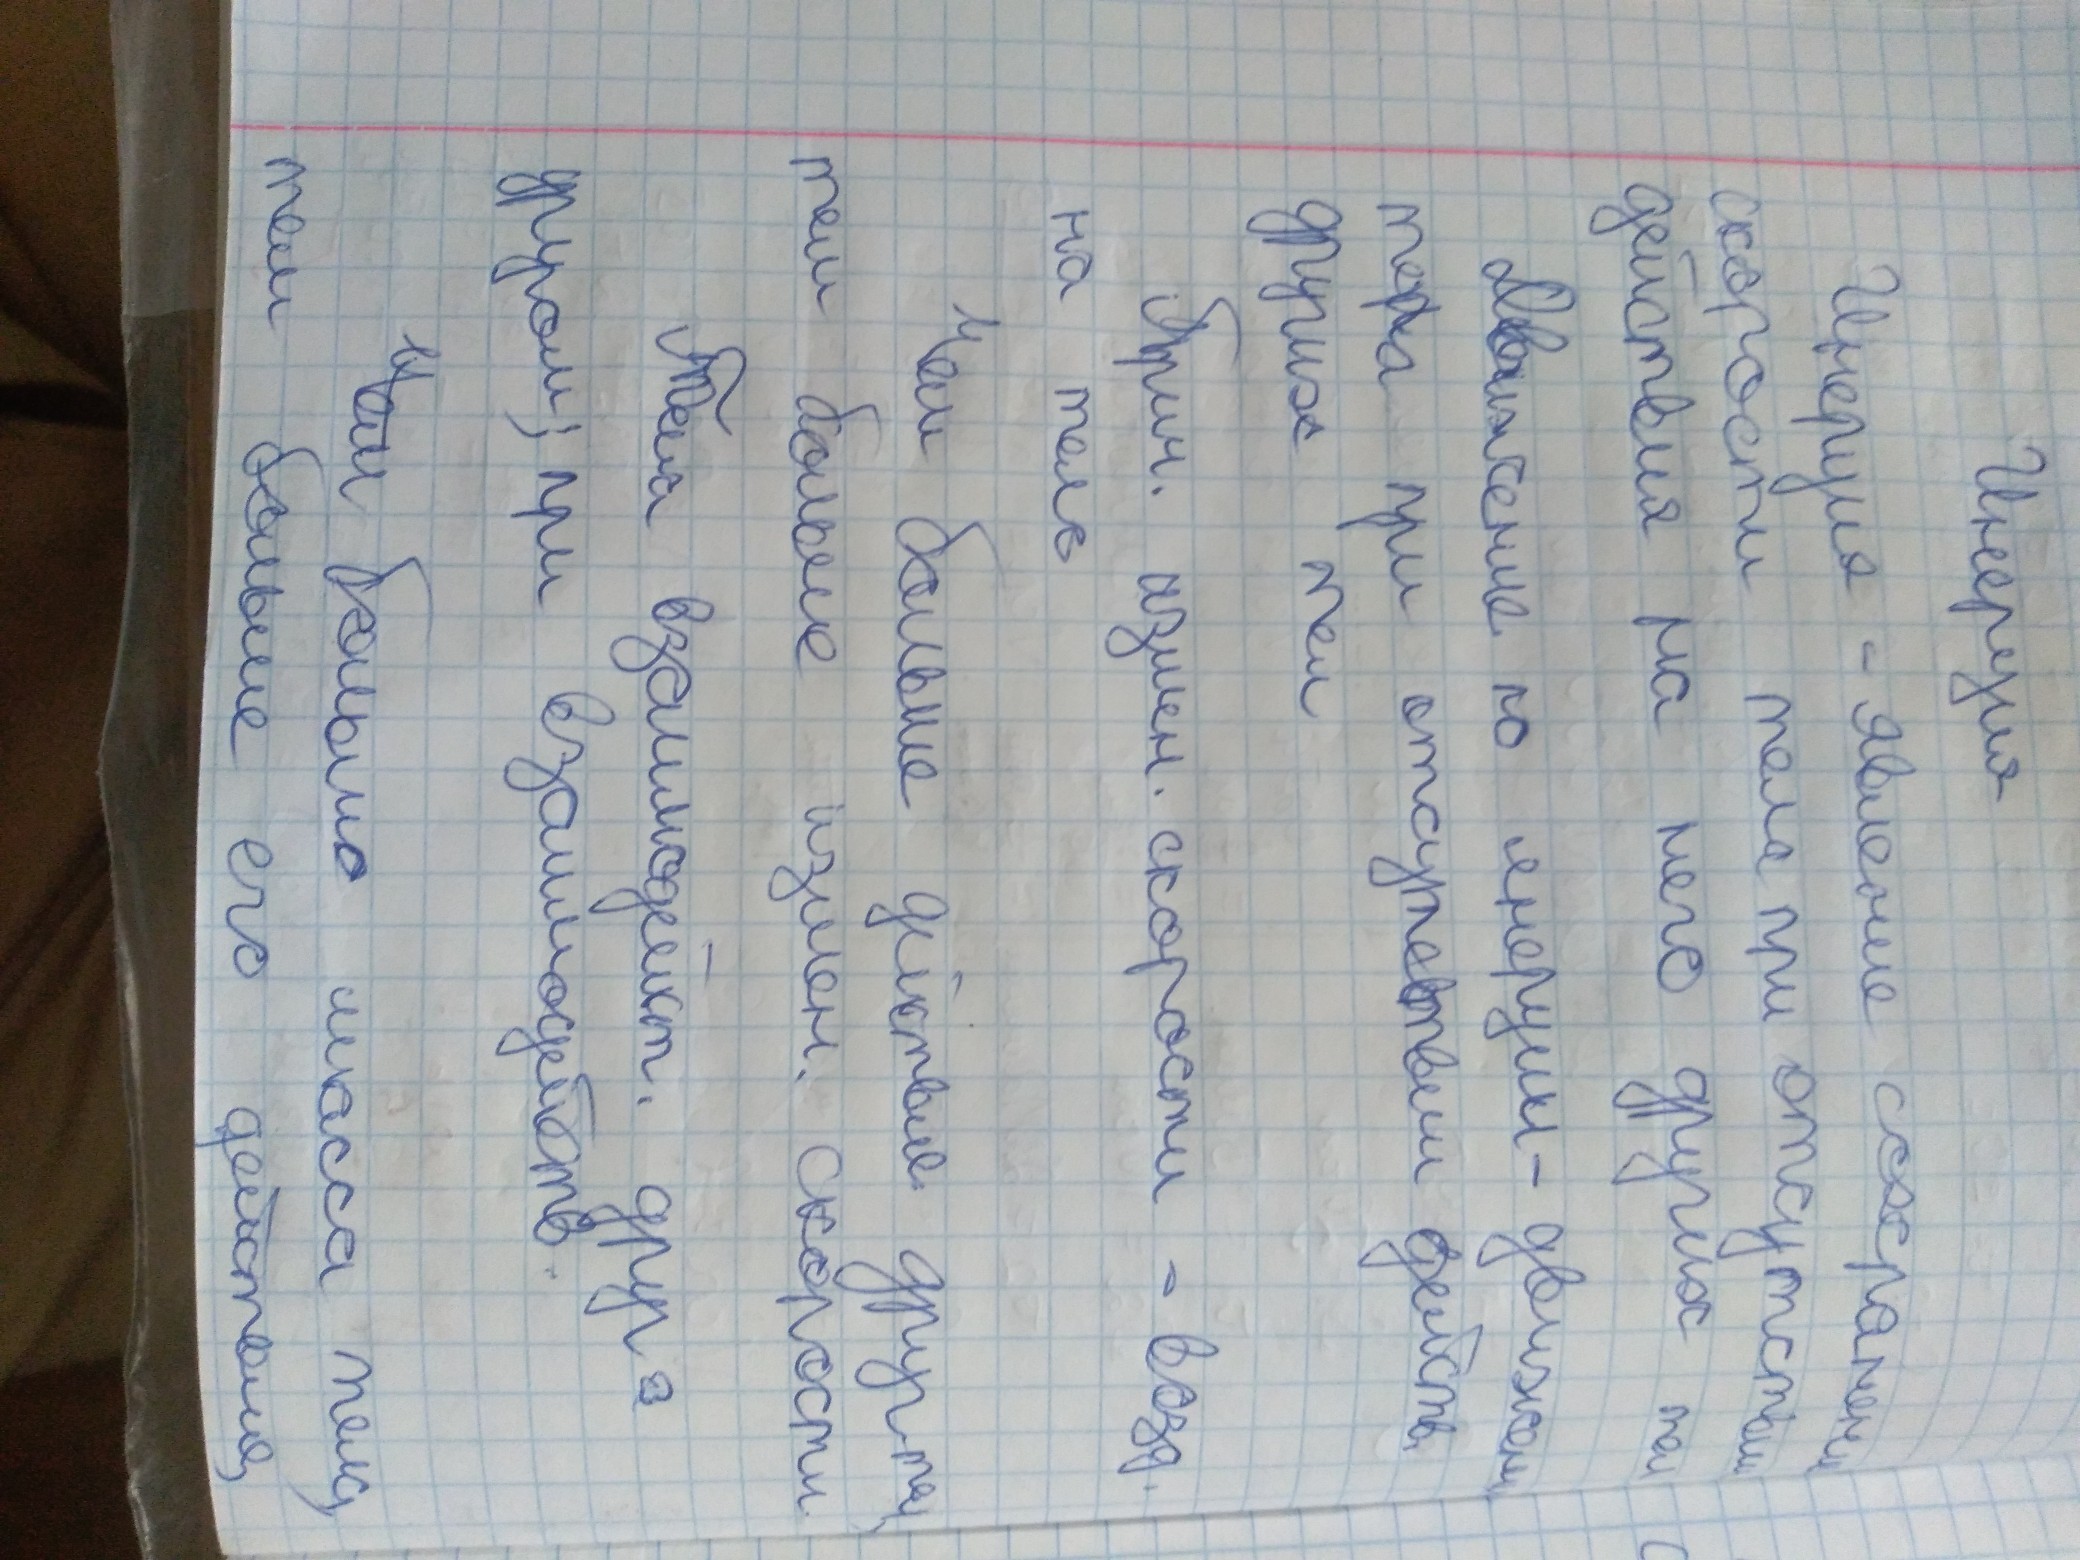 Инерция
Инерция - явление сохранени
скорости тела при отсутствии
действия на него других тел
Движение по инерции - движени
тера при отсутствии действ
других тел
Прич. измен. скорости - возд.
на тело
Чем больше действие друг. тел,
тем больше измен. скорости
Тела взаимодейст. друг с
другом; при взаимодейств.
Чем больше масса тела,
тем больше его действия